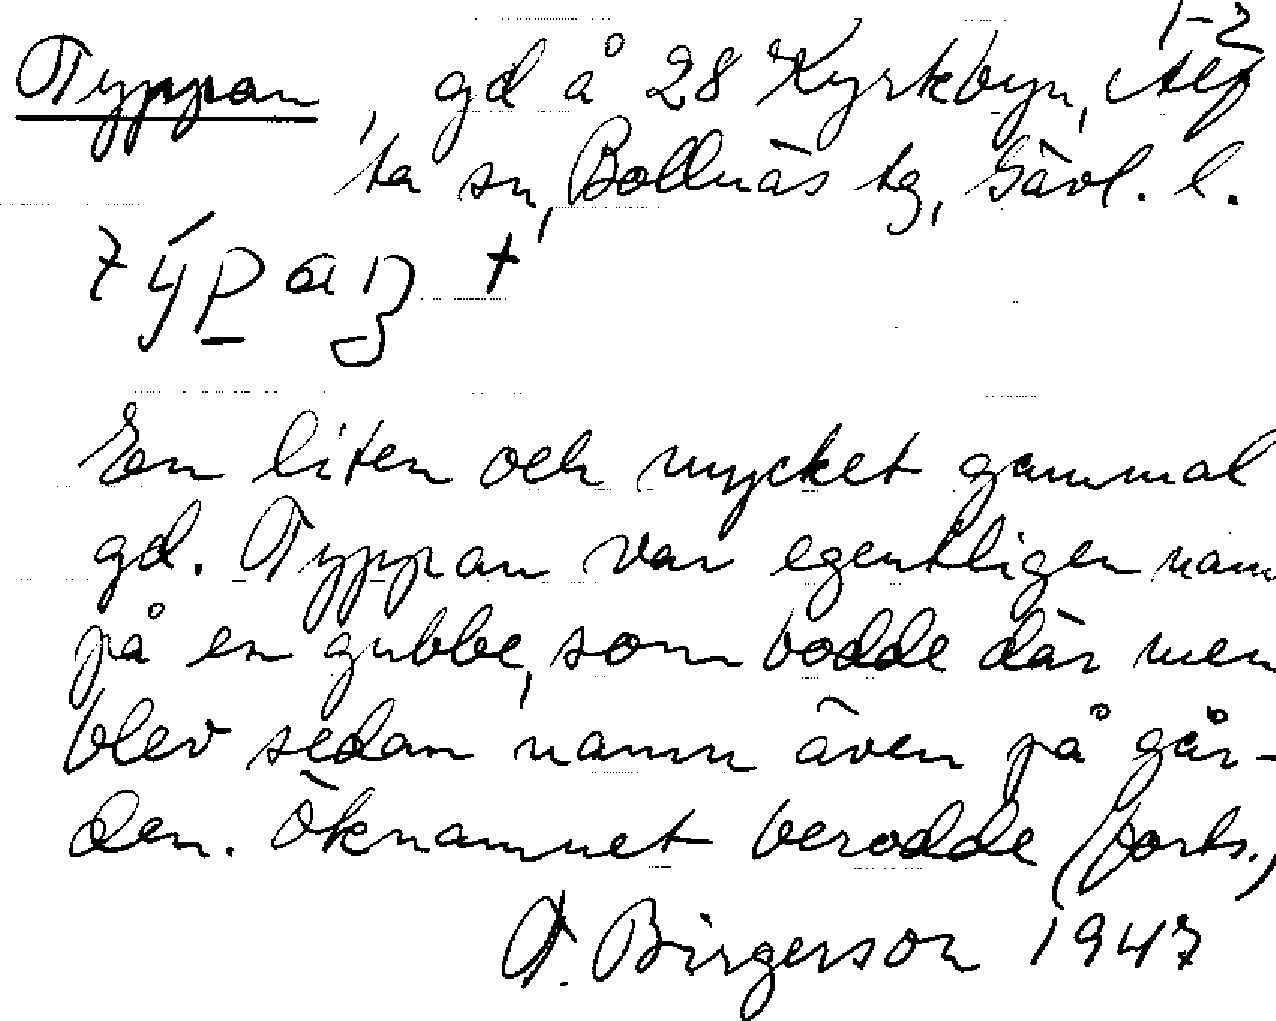 1-2
Typpan, gd å 28 Kyrkbyn, Alf
ta sn, Bollnäs tg, Gävl. l.
En liten och mycket gammal
gd. Typpan var egentligen namn
på en gubbe, som bodde där men
blev sedan namn även på går-
den. Öknamnet berodde (forts.)
Birgerson 1947